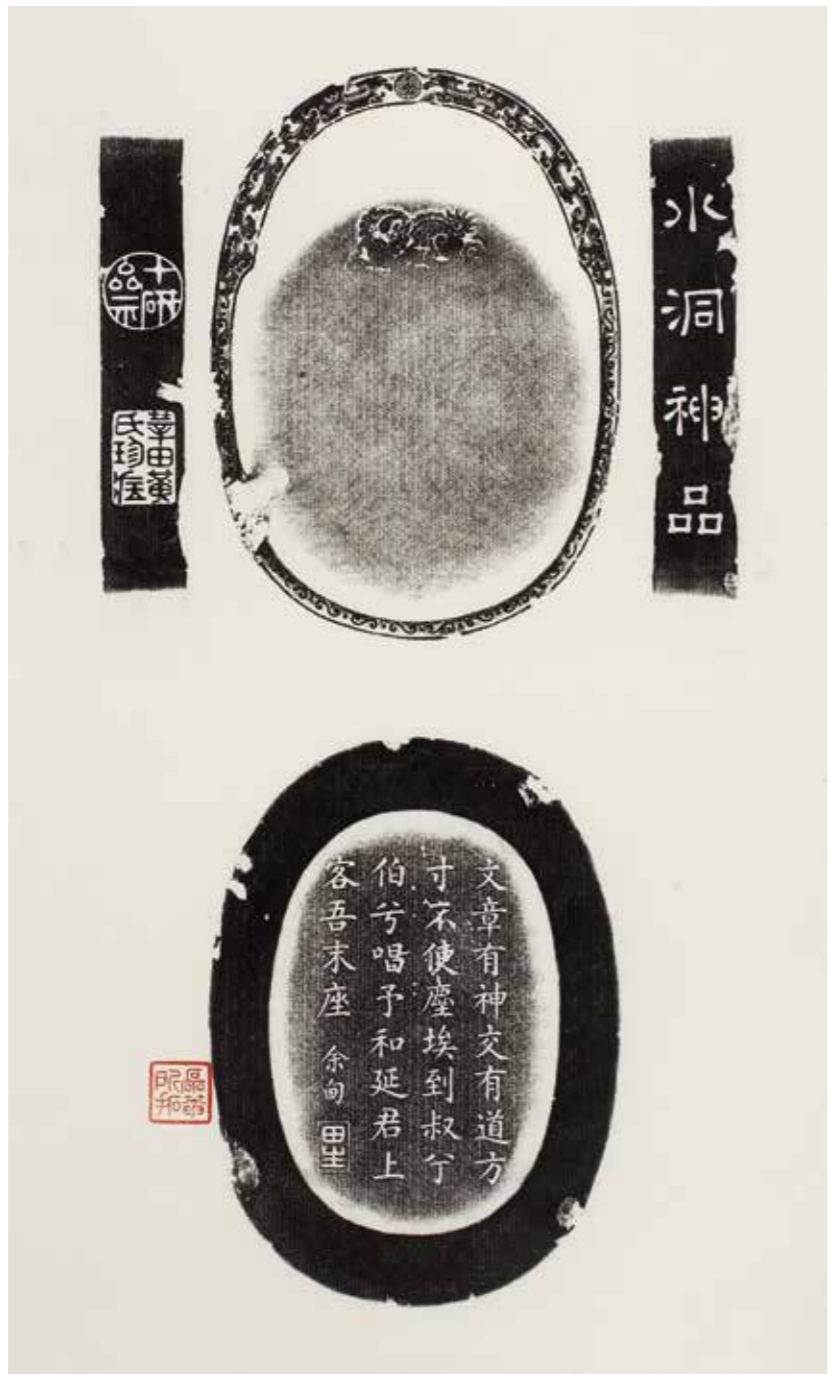 水洞神品
莘田黃
氏珍藏
文章有神交有道方
寸不使塵埃到叔兮
伯兮唱予和延君上
客吾末座 余甸 田生
所拓